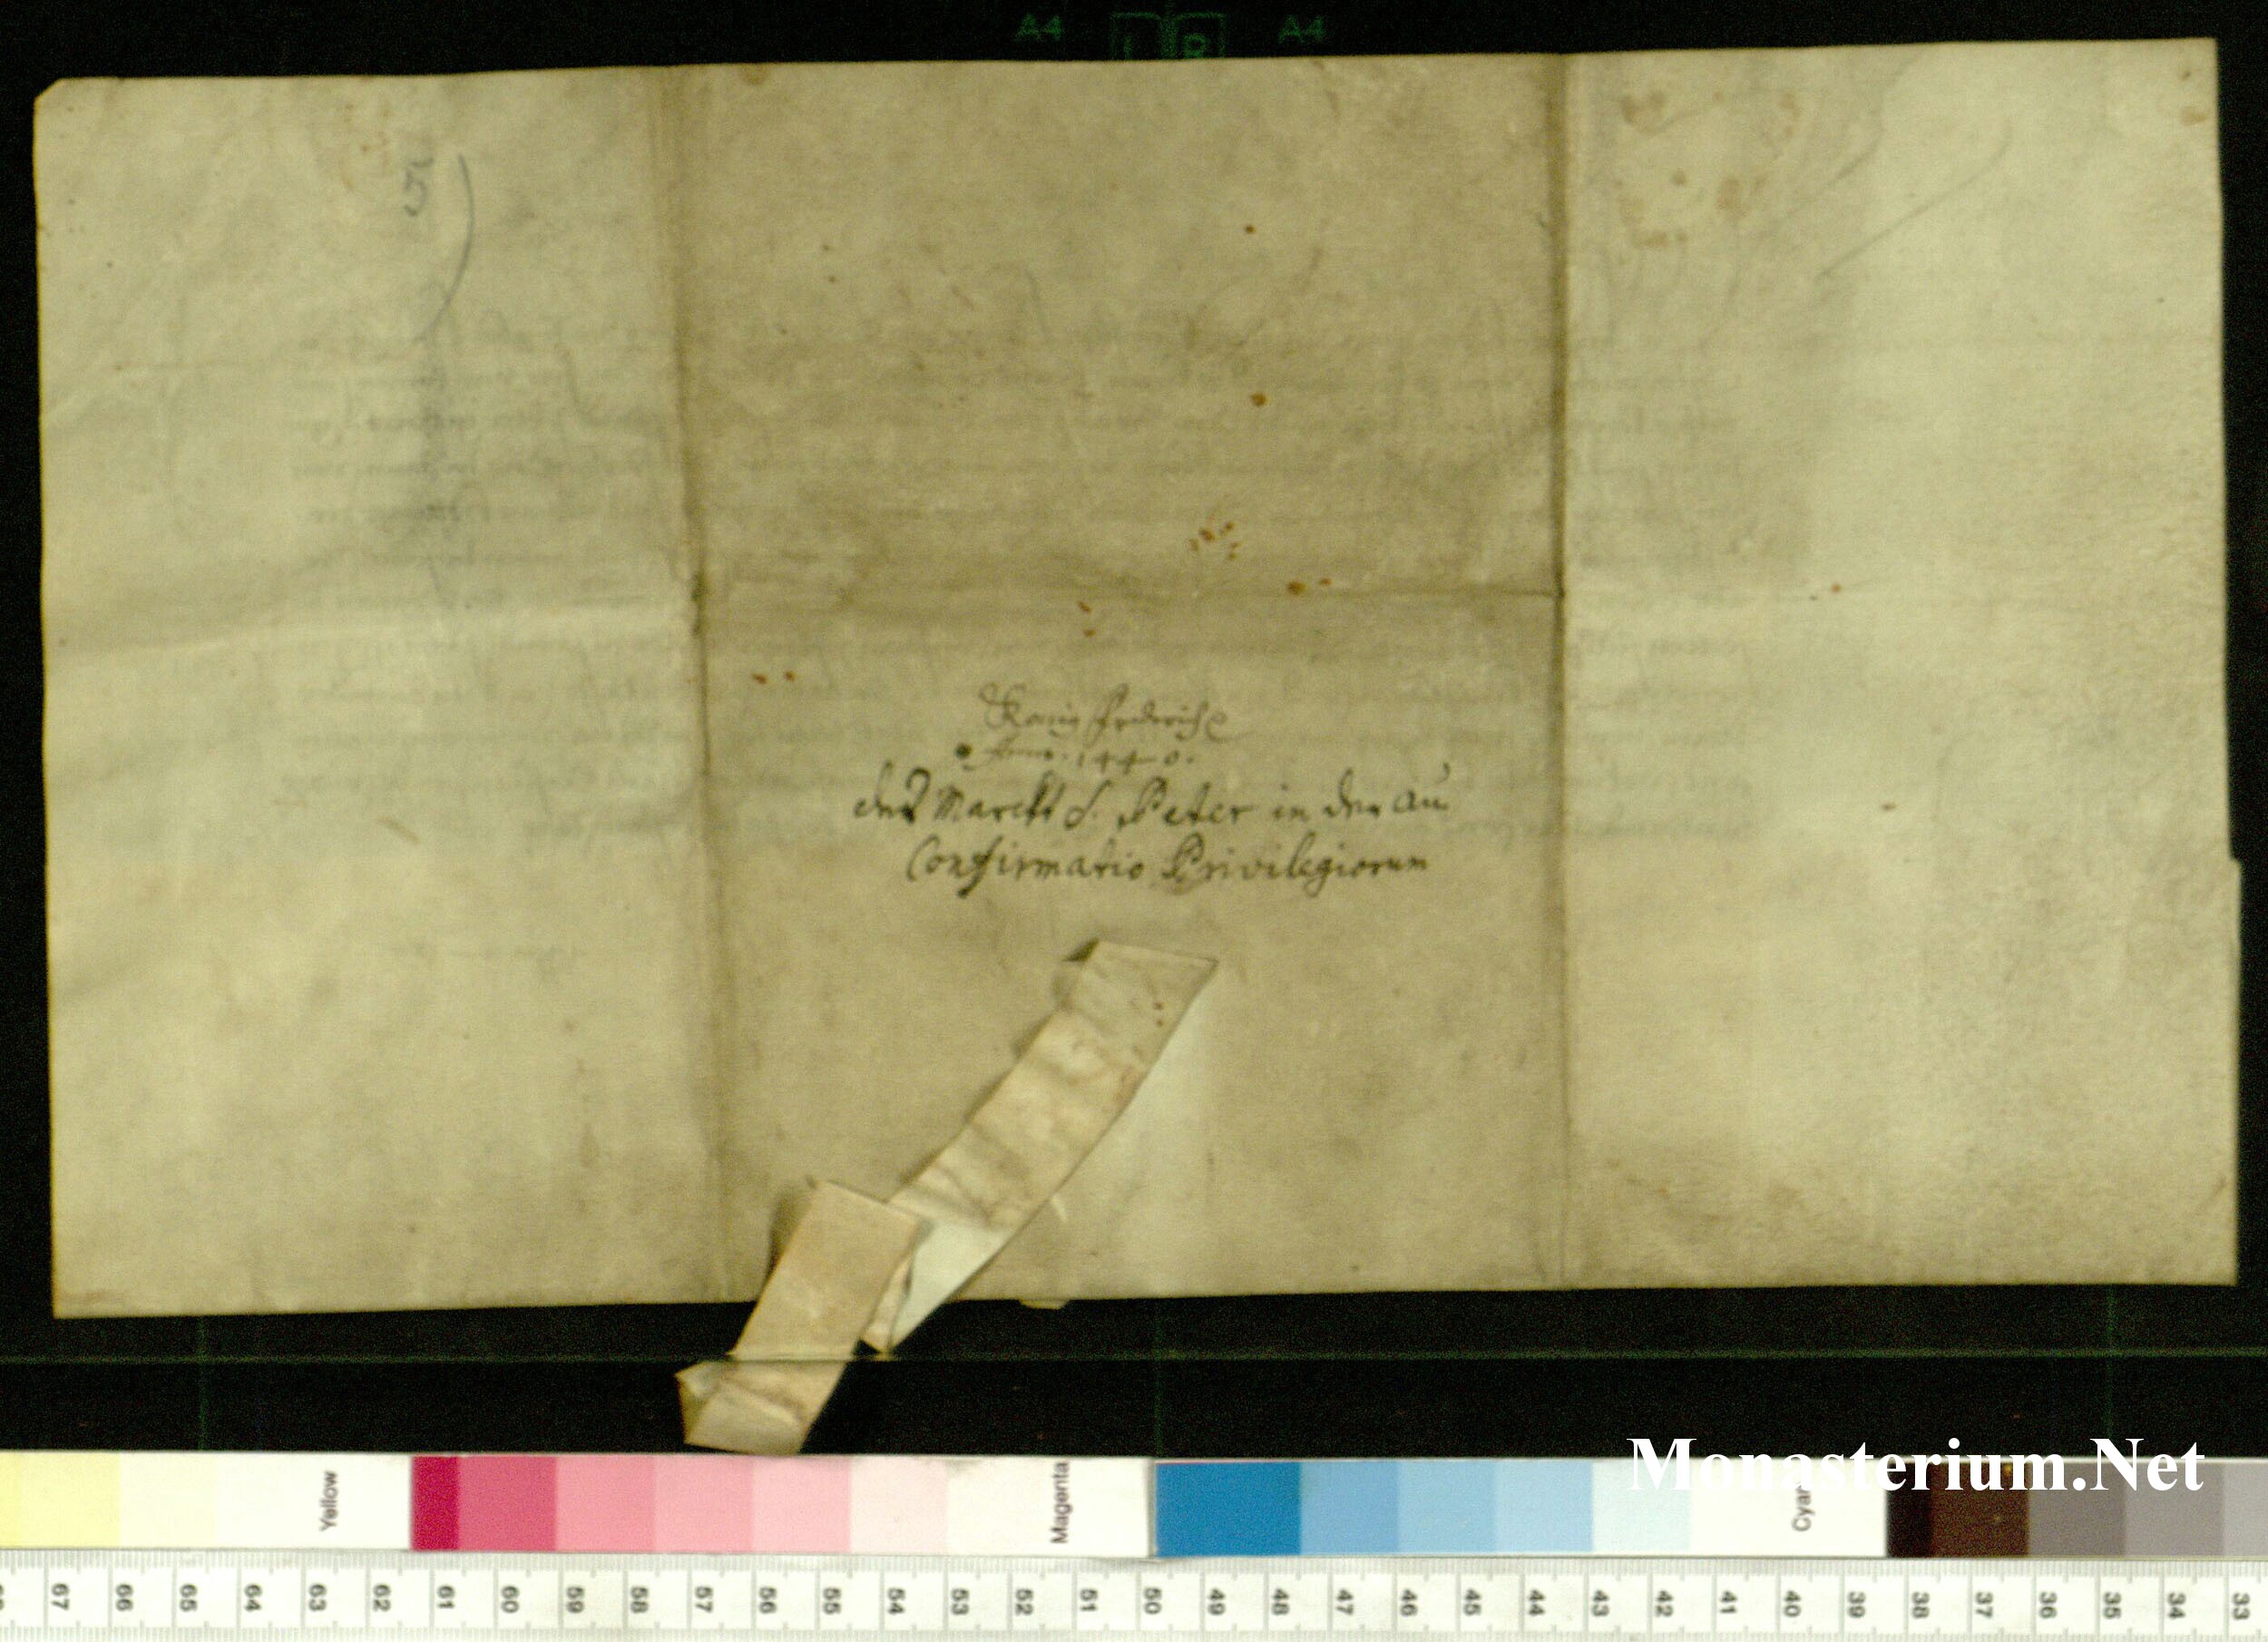 A4 L R A4
König Friderichs
Anno. 1440.
des Marckt S. Peter in der Au
Confirmatio Privilegiorum
Monasterium.Net
Yellow
Magenta
Cyan
67 66 65 64 63 62 61 60 59 58 57 56 55 54 53 52 51 50 49 48 47 46 45 44 43 42 41 40 39 38 37 36 35 34 33